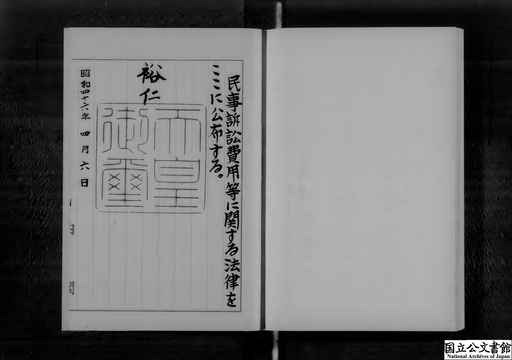 民事訴訟費用等に関する法律を
ここに公布する。
裕仁
天皇御璽
昭和四十六年 四月六日
国立公文書館
National Archives of Japan